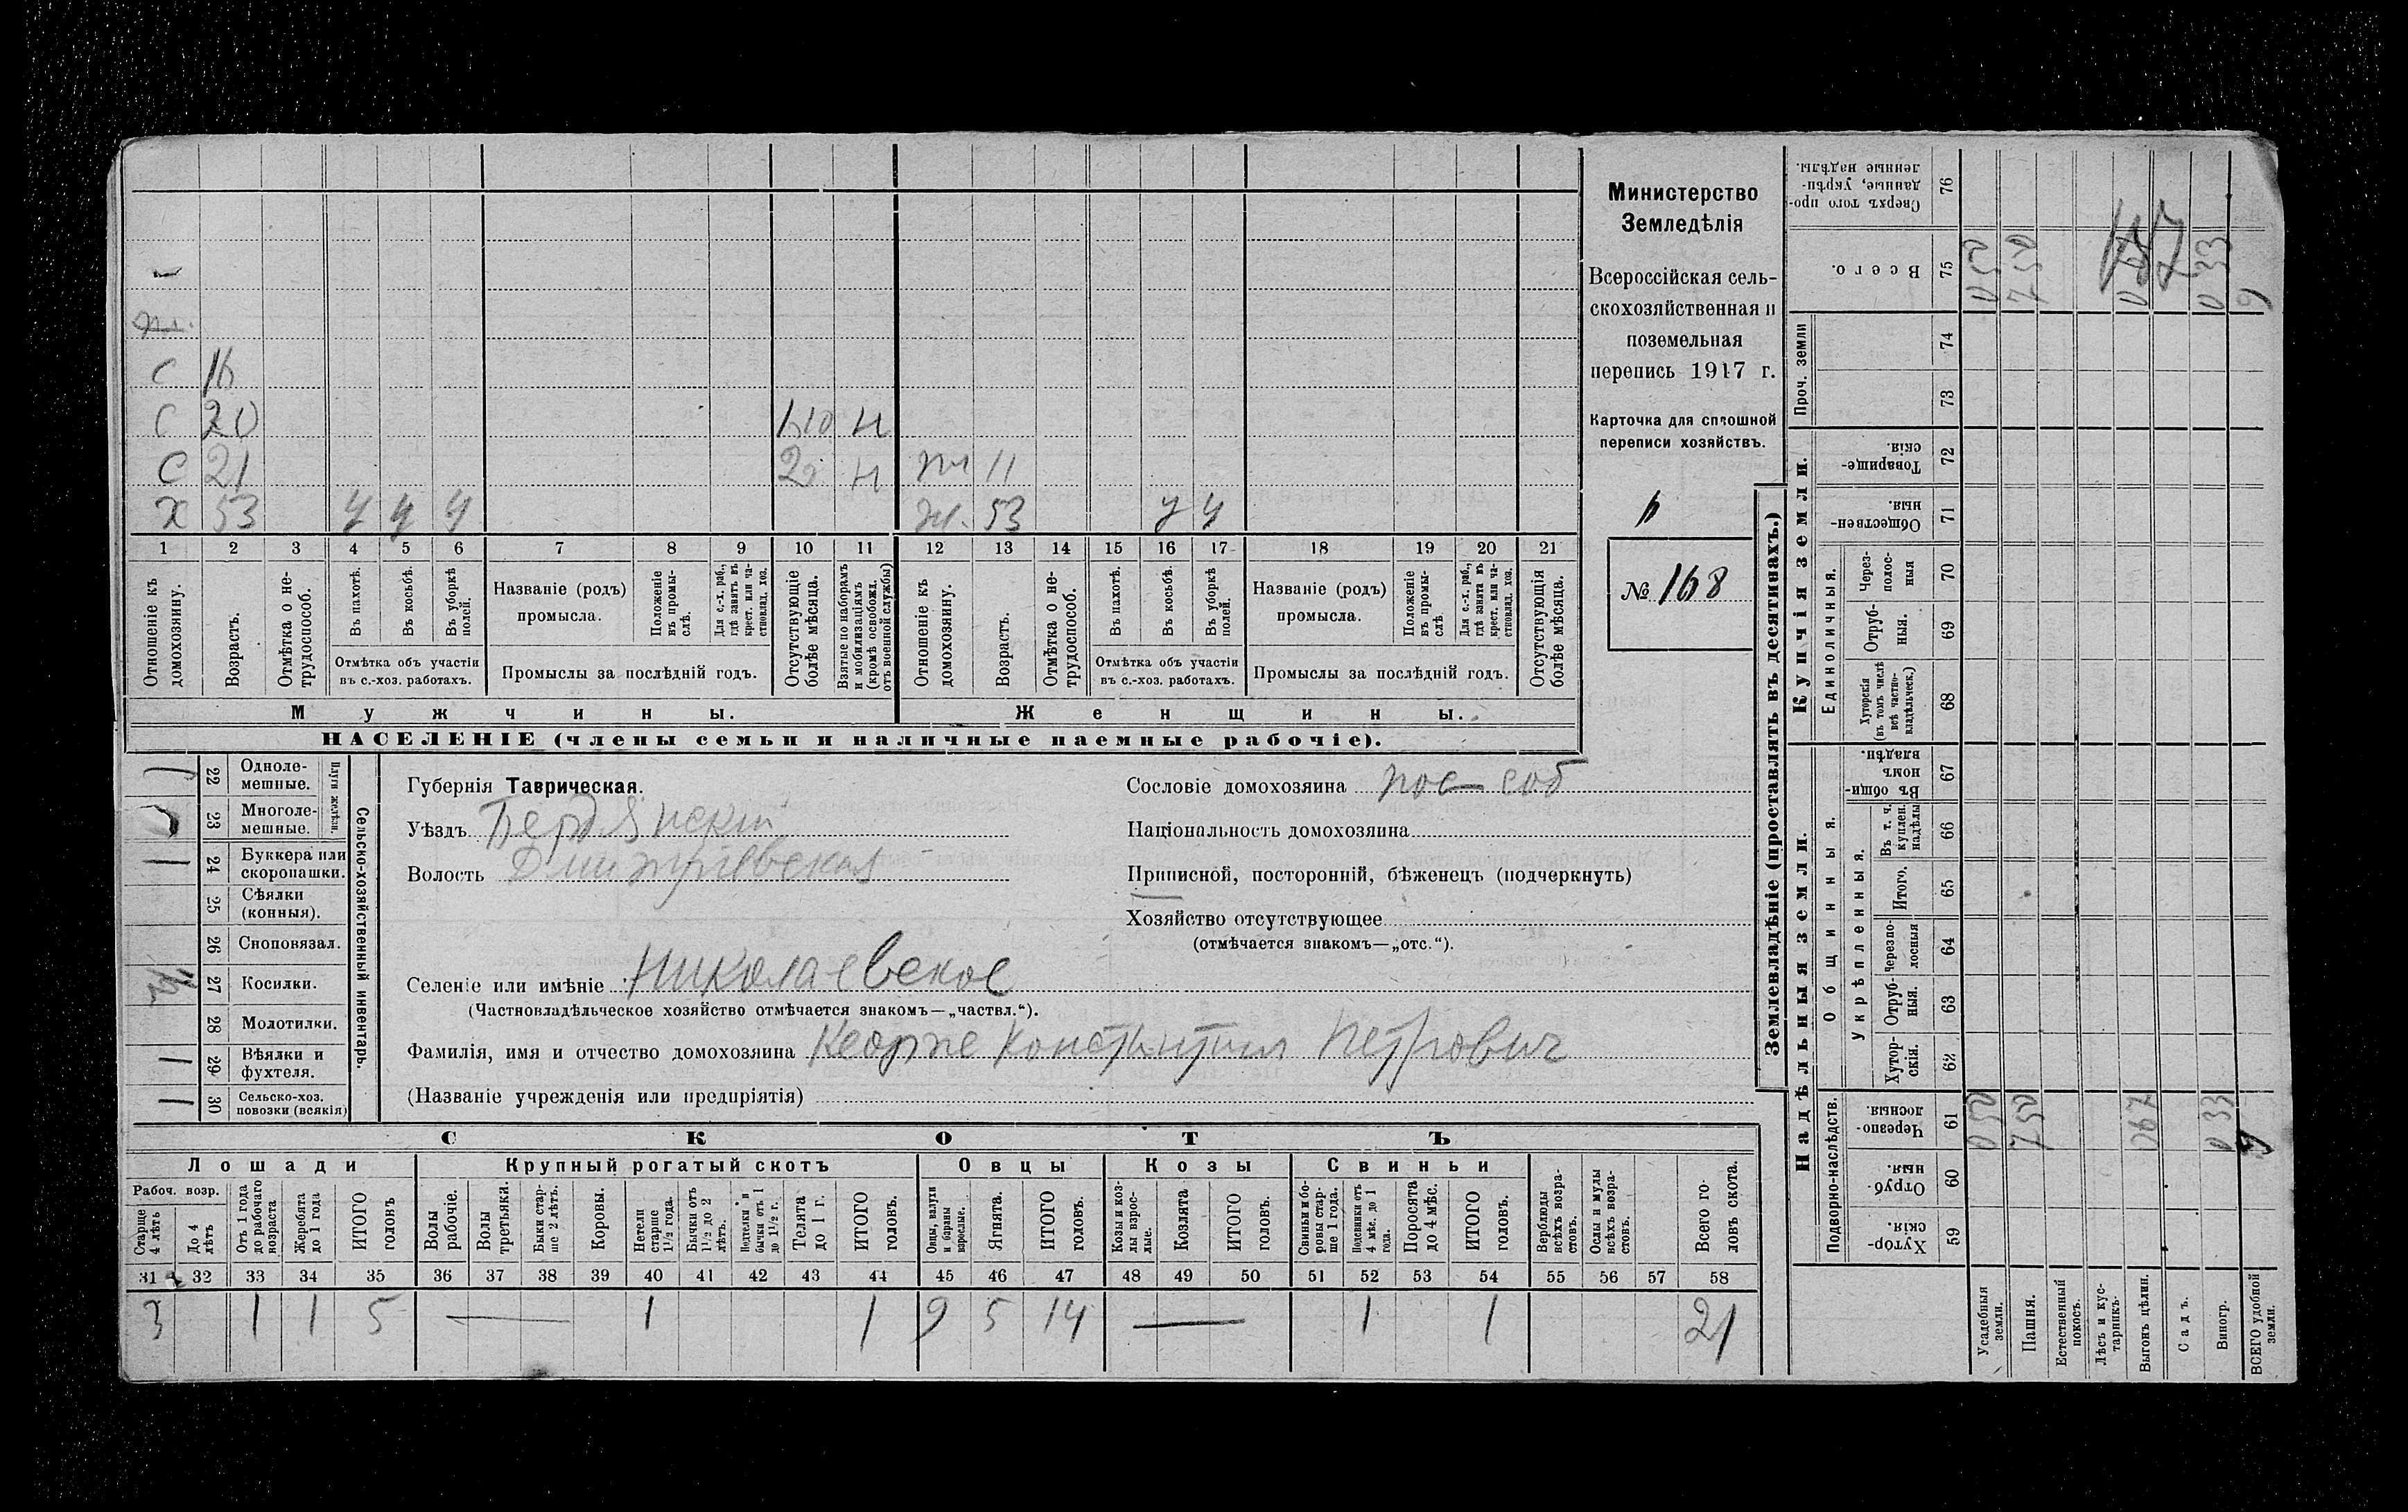 Министерство
Земледѣлія
Всероссійская сель-
скохозяйственная и
поземельная
перепись 1917 г.
Карточка для сплошной
переписи хозяйствъ.
№ 168
С 16
С 20 н
С 21 н 11
Х 53 у у у ж. 53 у у
1 2 3 4 5 6 7 8 9 10 11 12 13 14 15 16 17 18 19 20 21
Отношеніе къ домохозяину.
Возрастъ.
Отмѣтка о не-трудоспособ.
Въ пахотѣ.
Въ косьбѣ.
Въ уборкѣ полей.
Отмѣтка объ участіи
въ с.-хоз. работахъ.
Названіе (родъ)
промысла.
Положеніе въ промы-слѣ.
Для с.-х. раб., гдѣ занятъ въ крест. или ча-стновлад. хоз.
Промыслы за послѣдній годъ.
Отсутствующіе болѣе мѣсяца.
Взятые по наборамъ и мобилизаціямъ (кромѣ освобожд. отъ военной службы)
Отношеніе къ домохозяину.
Возрастъ.
Отмѣтка о не-трудоспособ.
Въ пахотѣ.
Въ косьбѣ.
Въ уборкѣ полей.
Отмѣтка объ участіи
въ с.-хоз. работахъ.
Названіе (родъ)
промысла.
Положеніе въ промы-слѣ
Для с.-х. раб., гдѣ занята въ крест. или ча-стновлад. хоз.
Промыслы за послѣдній годъ.
Отсутствующія болѣе мѣсяца.
Мужчины. Женщины.
НАСЕЛЕНІЕ (члены семьи и наличные наемные рабочіе).
Сельско-хозяйственный инвентарь.
Плуги желѣзн.
22 Одноле-мешные.
23 Многоле-мешные.
24 Буккера или скоропашки.
25 Сѣялки (конныя).
26 Сноповязал.
27 Косилки.
28 Молотилки.
29 Вѣялки и фухтеля.
30 Сельско-хоз. повозки (всякія)
Губернія Таврическая.
Уѣздъ Бердянскій
Волость Дмитріевская
Селеніе или имѣніе Николаевское
(Частновладѣльческое хозяйство отмѣчается знакомъ—„частвл.“).
Фамилія, имя и отчество домохозяина Константин Петрович
(Названіе учрежденія или предпріятія)
Сословіе домохозяина пос—соб
Національность домохозяина
Приписной, посторонній, бѣженецъ (подчеркнуть)
Хозяйство отсутствующее
(отмѣчается знакомъ—„отс.“).
СКОТЪ
Лошади Крупный рогатый скотъ Овцы Козы Свиньи
Рабоч. возр.
Старше 4 лѣтъ
До 4 лѣтъ
Отъ 1 года до рабочаго возраста
Жеребята до 1 года
ИТОГО головъ
Волы рабочіе.
Волы третьяки.
Быки стар-ше 2 лѣтъ.
Коровы.
Нетели старше 1½ года.
Бычки отъ 1½ до 2 лѣтъ.
Подтелки и бычки отъ 1 до 1½ г.
Телята до 1 г.
ИТОГО головъ.
Овцы, валухи и бараны взрослые.
Ягнята.
ИТОГО головъ.
Козы и коз-лы взрос-лые.
Козлята
ИТОГО головъ.
Свиньи и бо-ровы стар-ше 1 года.
Подсвинки отъ 4 мѣс. до 1 года.
Поросята до 4 мѣс.
ИТОГО головъ.
Верблюды всѣхъ возра-стовъ.
Ослы и мулы всѣхъ возра-стовъ.
Всего го-ловъ скота.
31 32 33 34 35 36 37 38 39 40 41 42 43 44 45 46 47 48 49 50 51 52 53 54 55 56 57 58
3 1 1 5 — 1 1 9 5 14 — 1 1 21
Землевладѣніе (проставлять въ десятинахъ.)
Надѣльныя земли. Купчія земли.
Проч. земли
Сверхъ того про-данные, укрѣп-ленные надѣлы. 76
Всего. 75
74
73
Товарище-скія. 72
Обществен-ныя. 71
Единоличныя.
Через-полос-ныя 70
Отруб-ныя. 69
Хуторскія (въ томъ числѣ всѣ частно-владѣльческ.) 68
Общинныя.
Въ общи-номъ владѣн. 67
Укрѣпленныя.
Въ т. ч. куплен. надѣлы 66
Итого. 65
Черезпо-лосныя 64
Отруб-ныя. 63
Хутор-скія. 62
Подворно-наслѣдств.
Черезпо-лосныя. 61
Отруб-ныя. 60
Хутор-скія. 59
Усадебныя земли. 050 050
Пашня. 750 750
Естественный покосъ.
Лѣсъ и кус-тарникъ.
Выгонъ цѣлин. 067
Садъ.
Виногр. 033 033
ВСЕГО удобной земли. 9 9